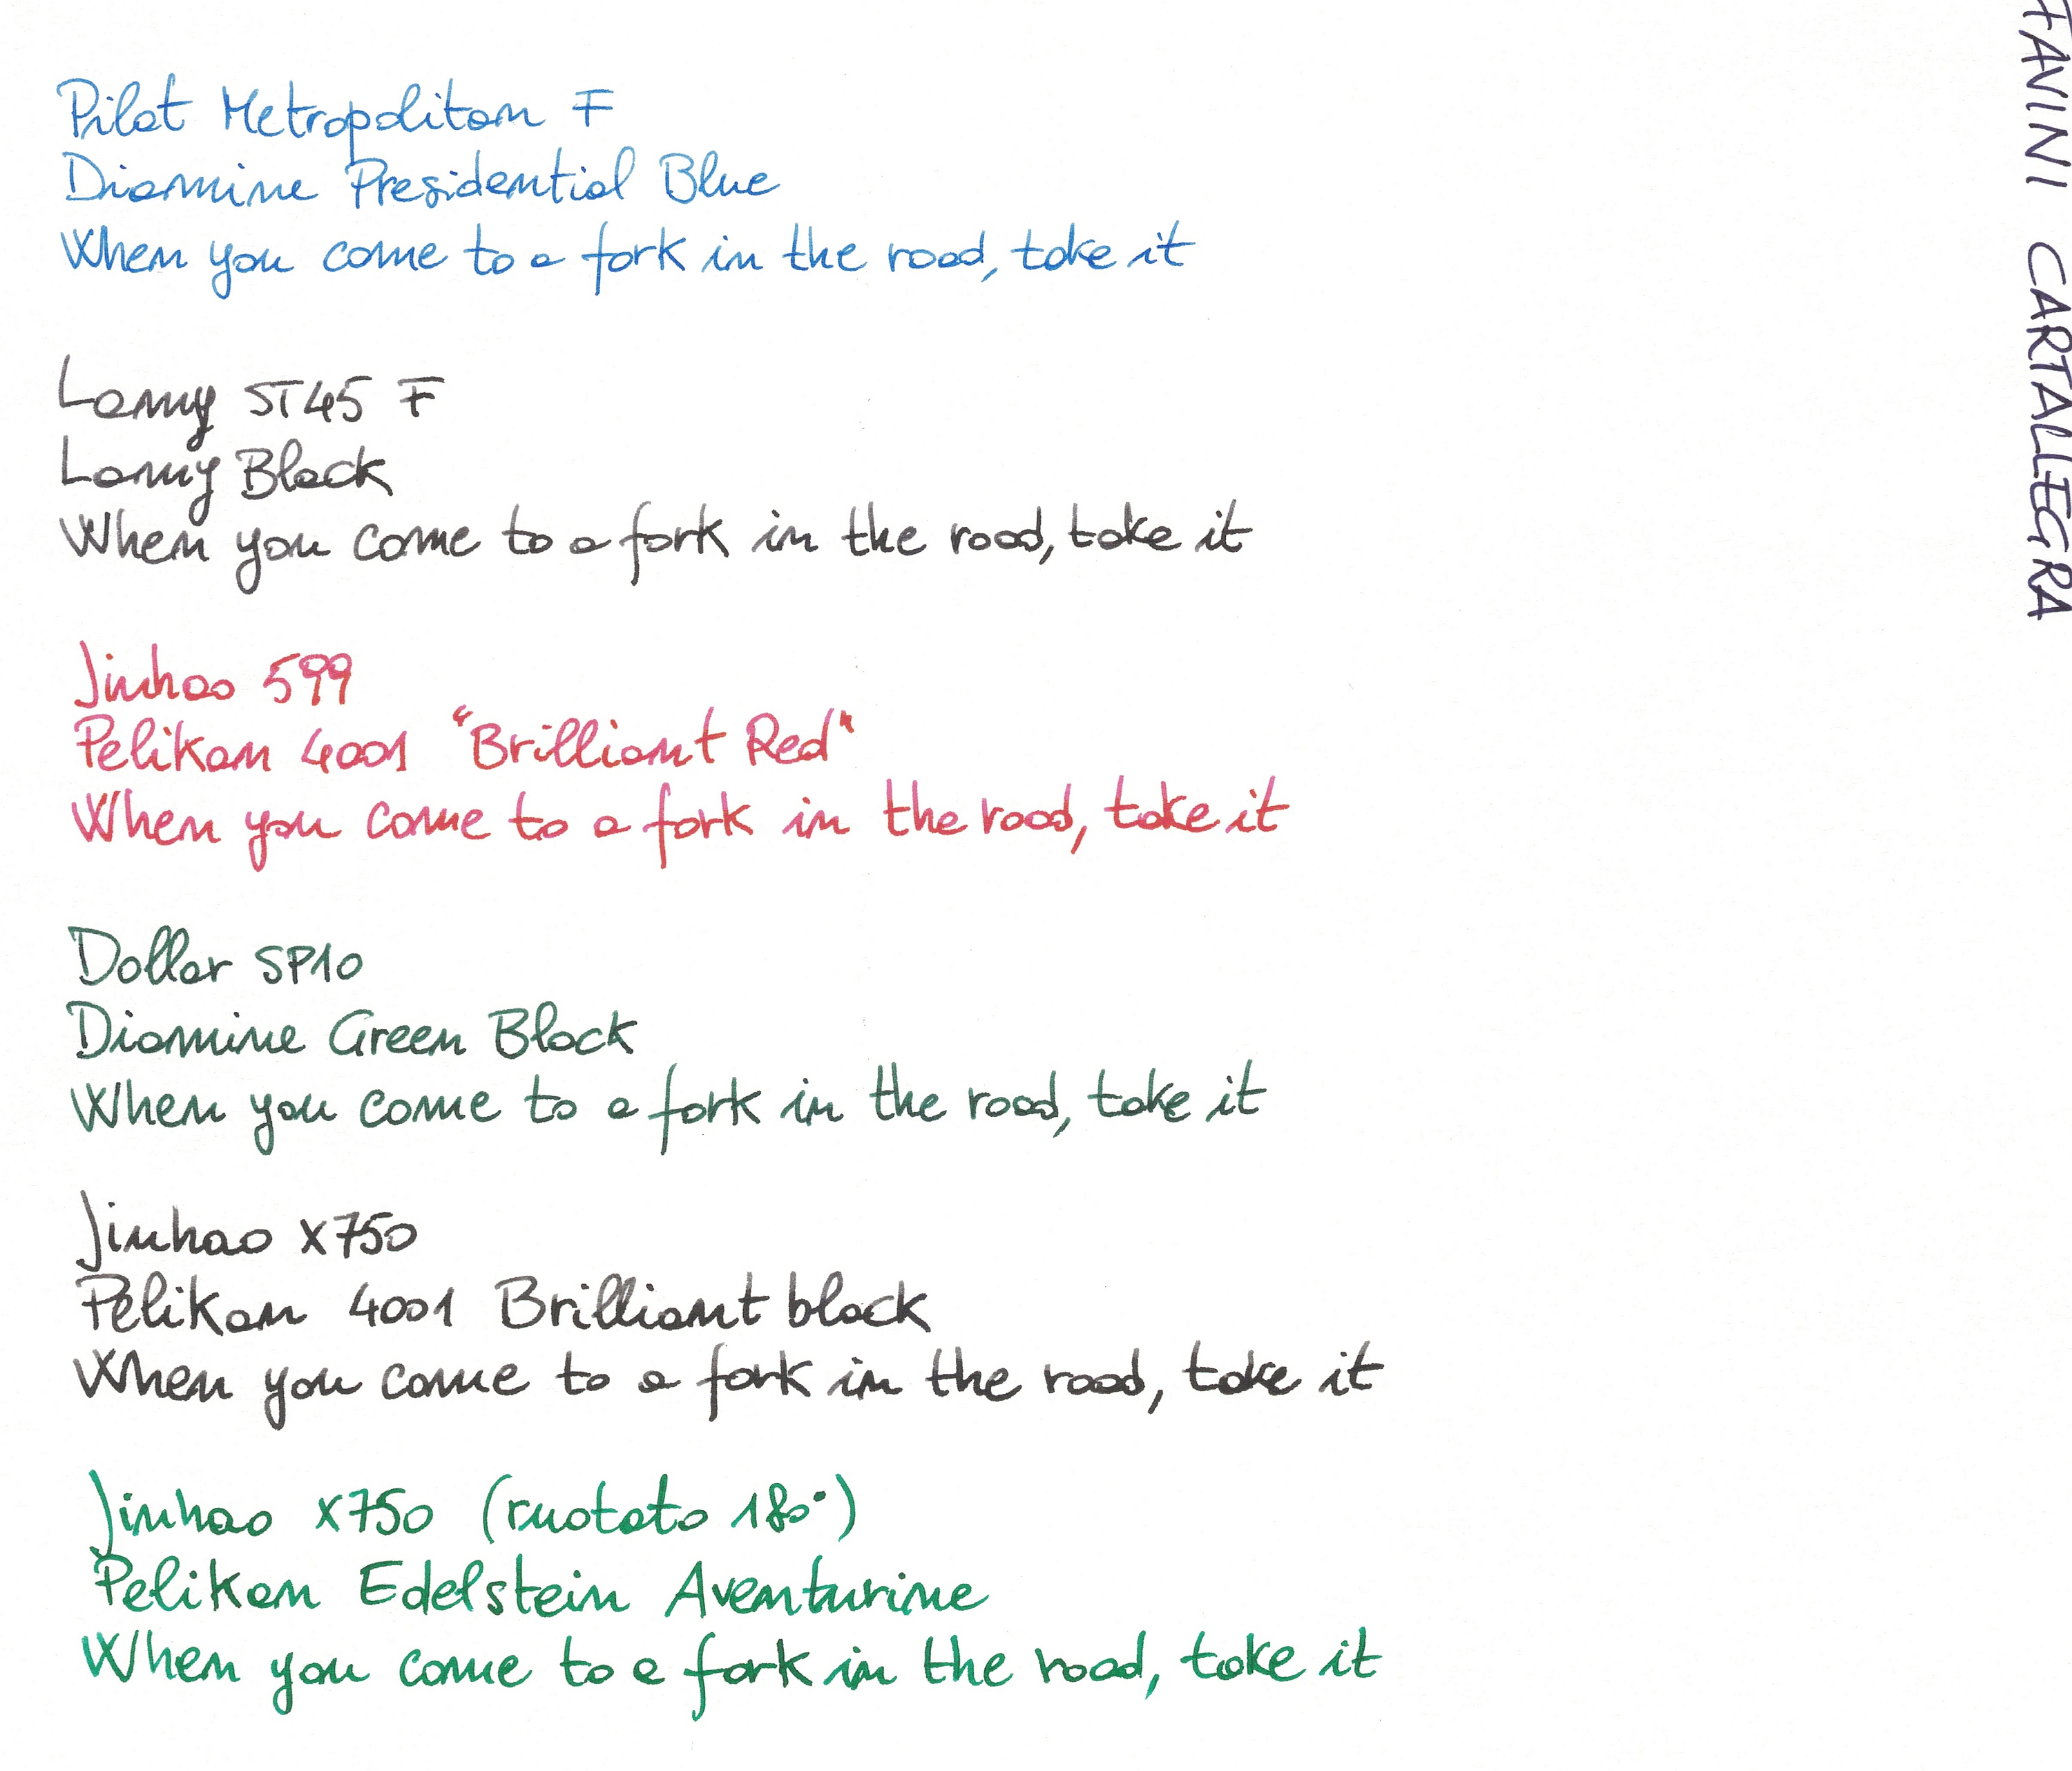 Pilot Metropolitan F
Diamine Presidential Blue
When you come to a fork in the road, take it
Lamy ST45 F
Lamy Black
When you come to a fork in the road, take it
Jinhao 599
Pelikan 4001 "Brilliant Red"
When you come to a fork in the road, take it
Dollar SP10
Diamine Green Black
When you come to a fork in the road, take it
Jinhao x750
Pelikan 4001 Brilliant black
When you come to a fork in the road, take it
Jinhao x750 (ruotato 180°)
Pelikan Edelstein Aventurine
When you come to a fork in the road, take it
FAVINI CARTALLEGRA